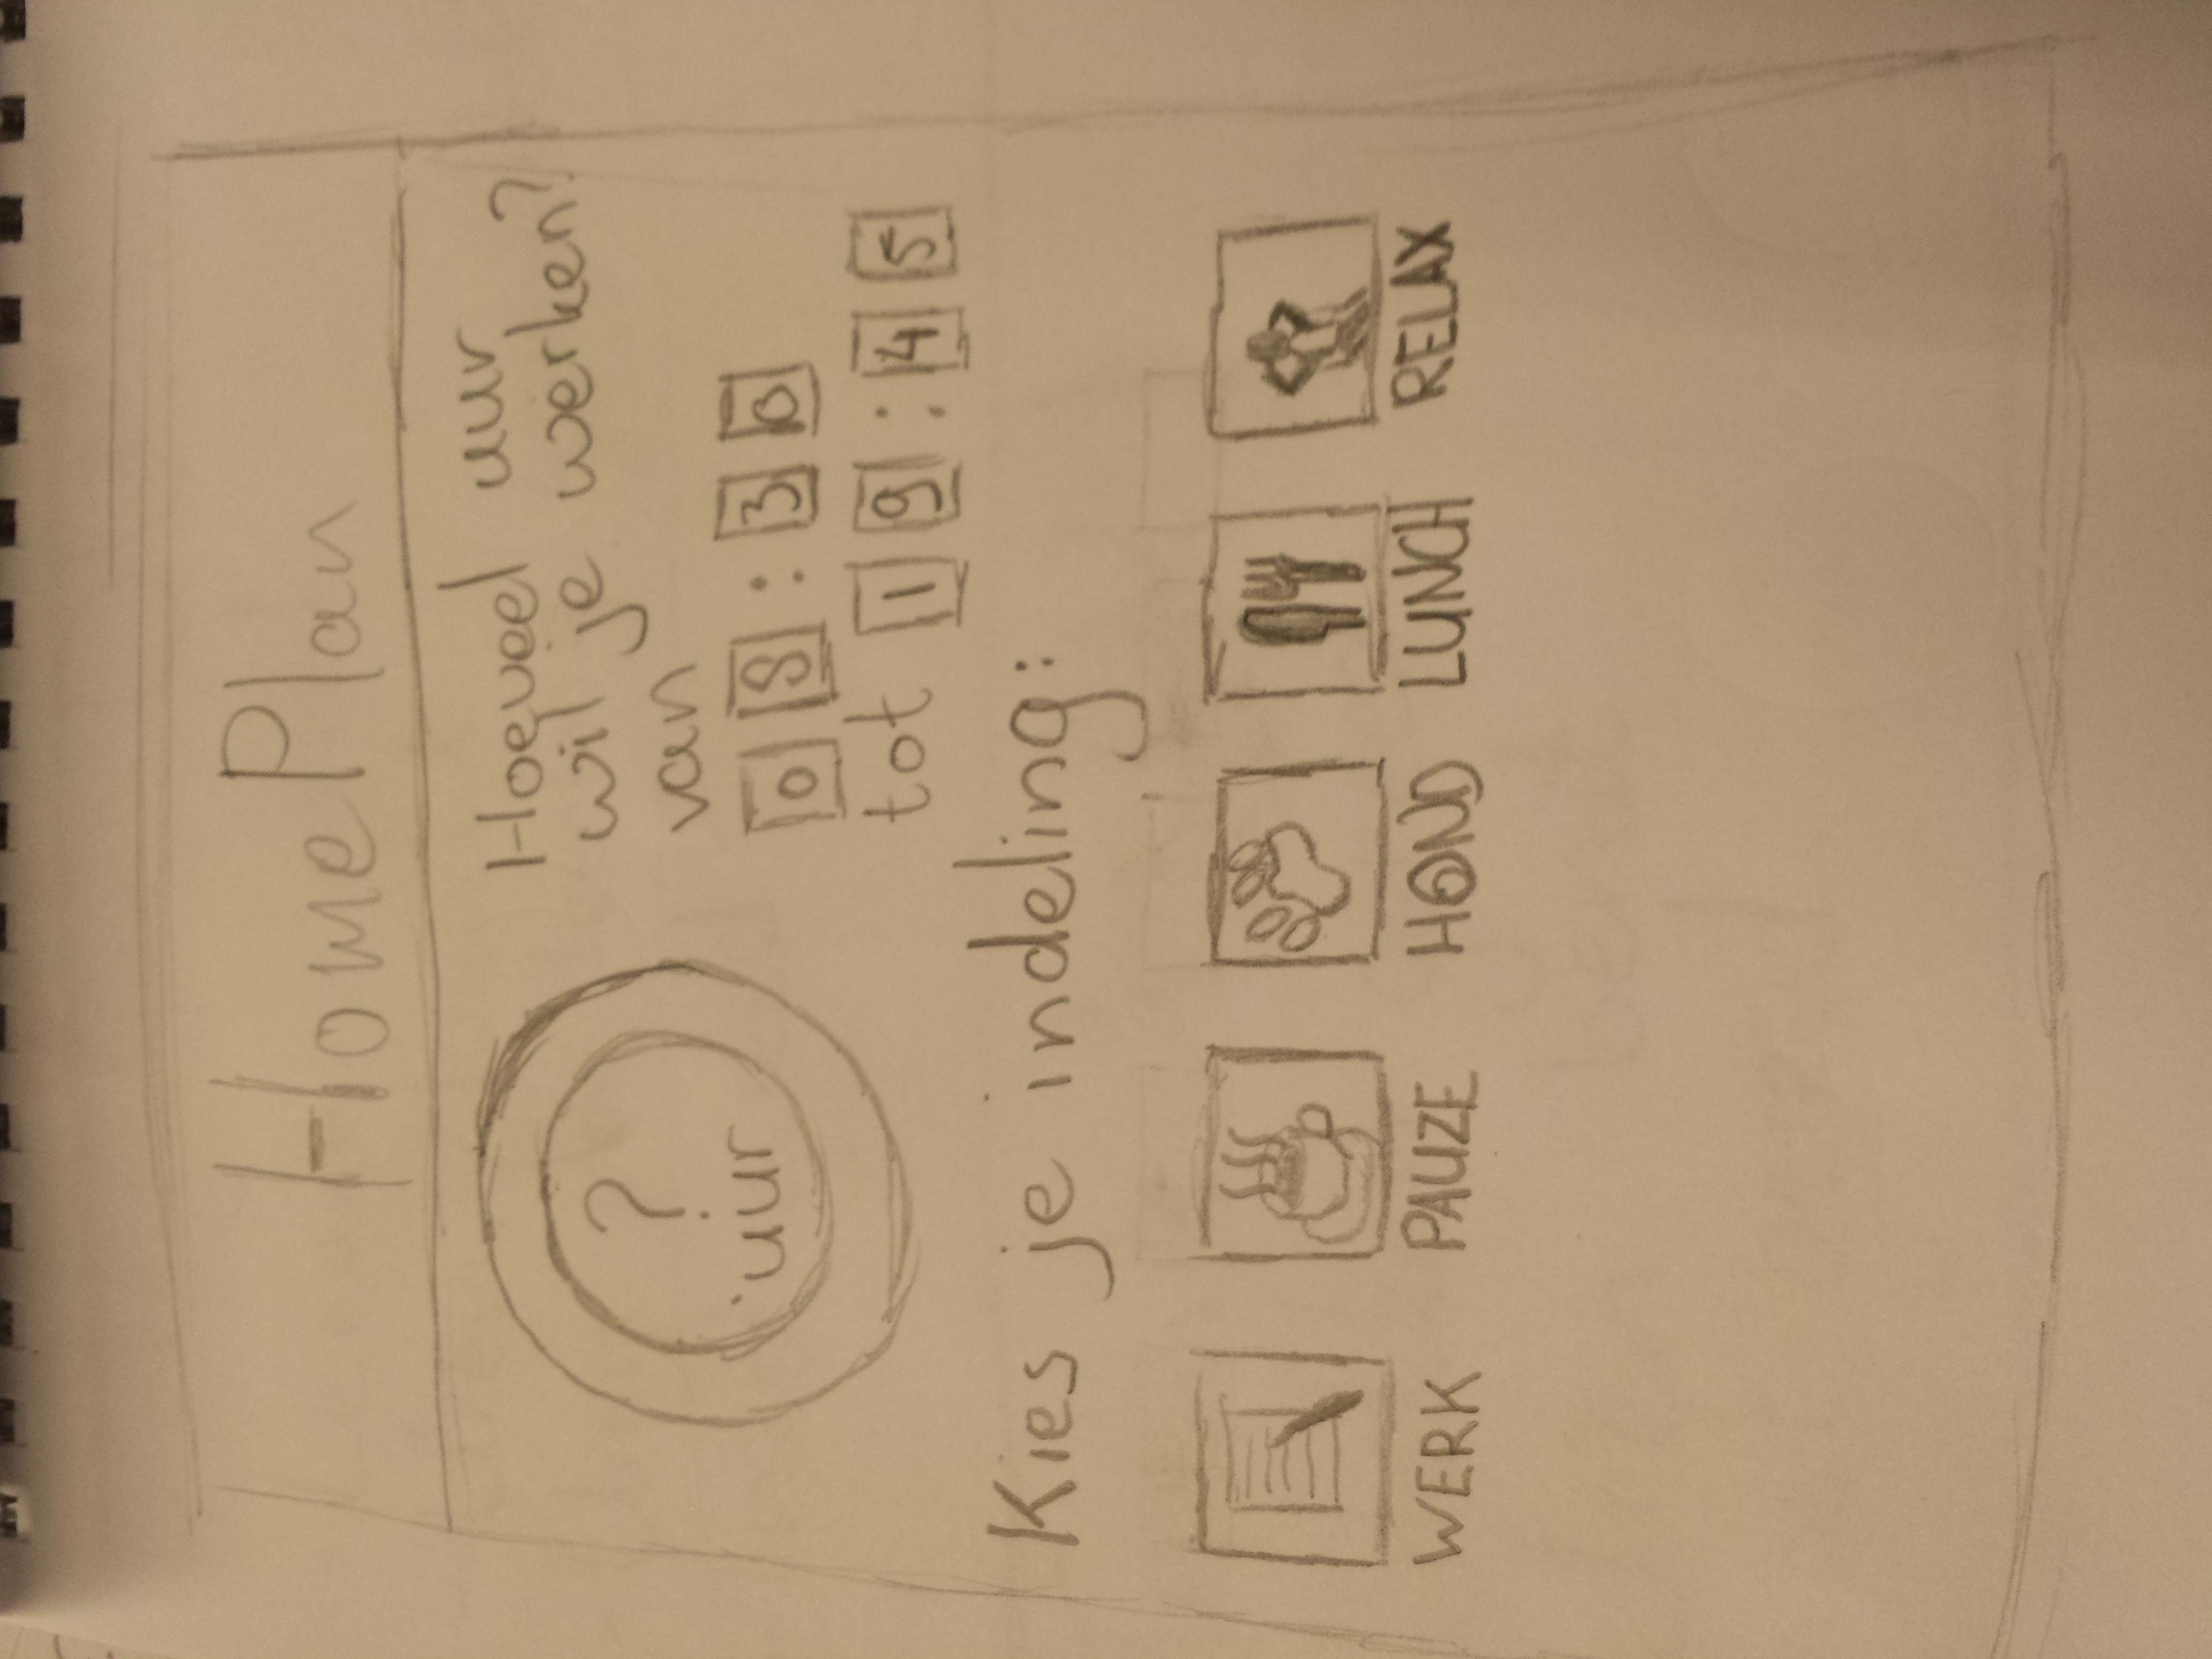 HomePlan
? uur
Hoeveel uur
wil je werken?
van
08:30
tot 19:45
Kies je indeling:
WERK PAUZE HOND LUNCH RELAX